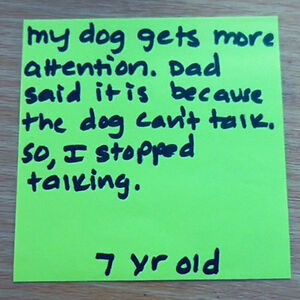 my dog gets more
attention. Dad
said it is because
the dog can't talk.
So, I stopped
talking.
7 yr old